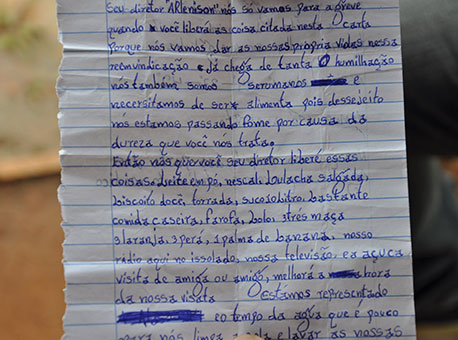 seu diretor "ARlenison" nós só vamos para a greve
quando você liberá as coisa citada nesta Carta
Porque nós vamos dar as nossas própria vidas nessa
reinvindicação já chega de tanta humilhação
nós também somos Serumanos e
necersitamos de ser alimenta pois dessejeito
nós estamos passando fome por causa da
dureza que você nos trata.
Então nós que você seu diretor liberé essas
coisas. leite em pó, nescal, bulacha salgada,
biscoito docê, torrada, suco 10 litro, bastante
comida caseira, farofa, bolo, 3 três maça
3 laranja, 3 perá, 1 palma de banana, nosso
rádio aqui no issolado, nossa televisão, e a açuca
visita de amiga ou amigo, melhorá a hora
da nossa visata Estamos representado
eo tempo da agua que é pouco
para nós limpa a sela e lavar as nossas